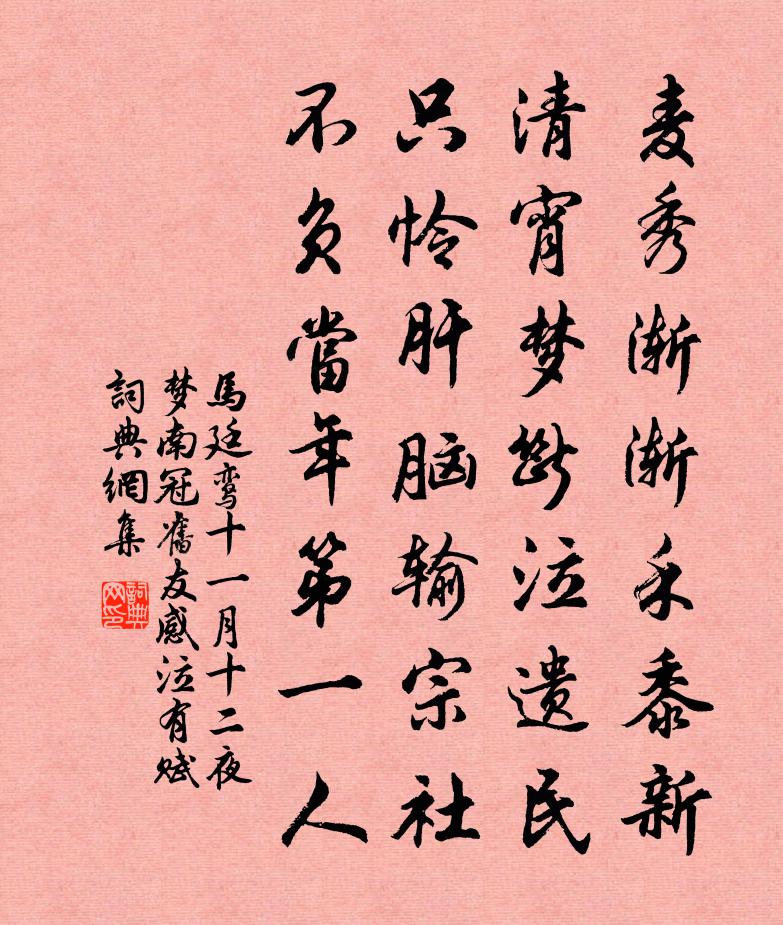 麦秀渐渐禾黍新
清宵梦断泣遗民
只怜肝脑输宗社
不负當年第一人
馬廷鸾十一月十二夜
梦南冠舊友感泣有赋
詞典網集
詞典网印